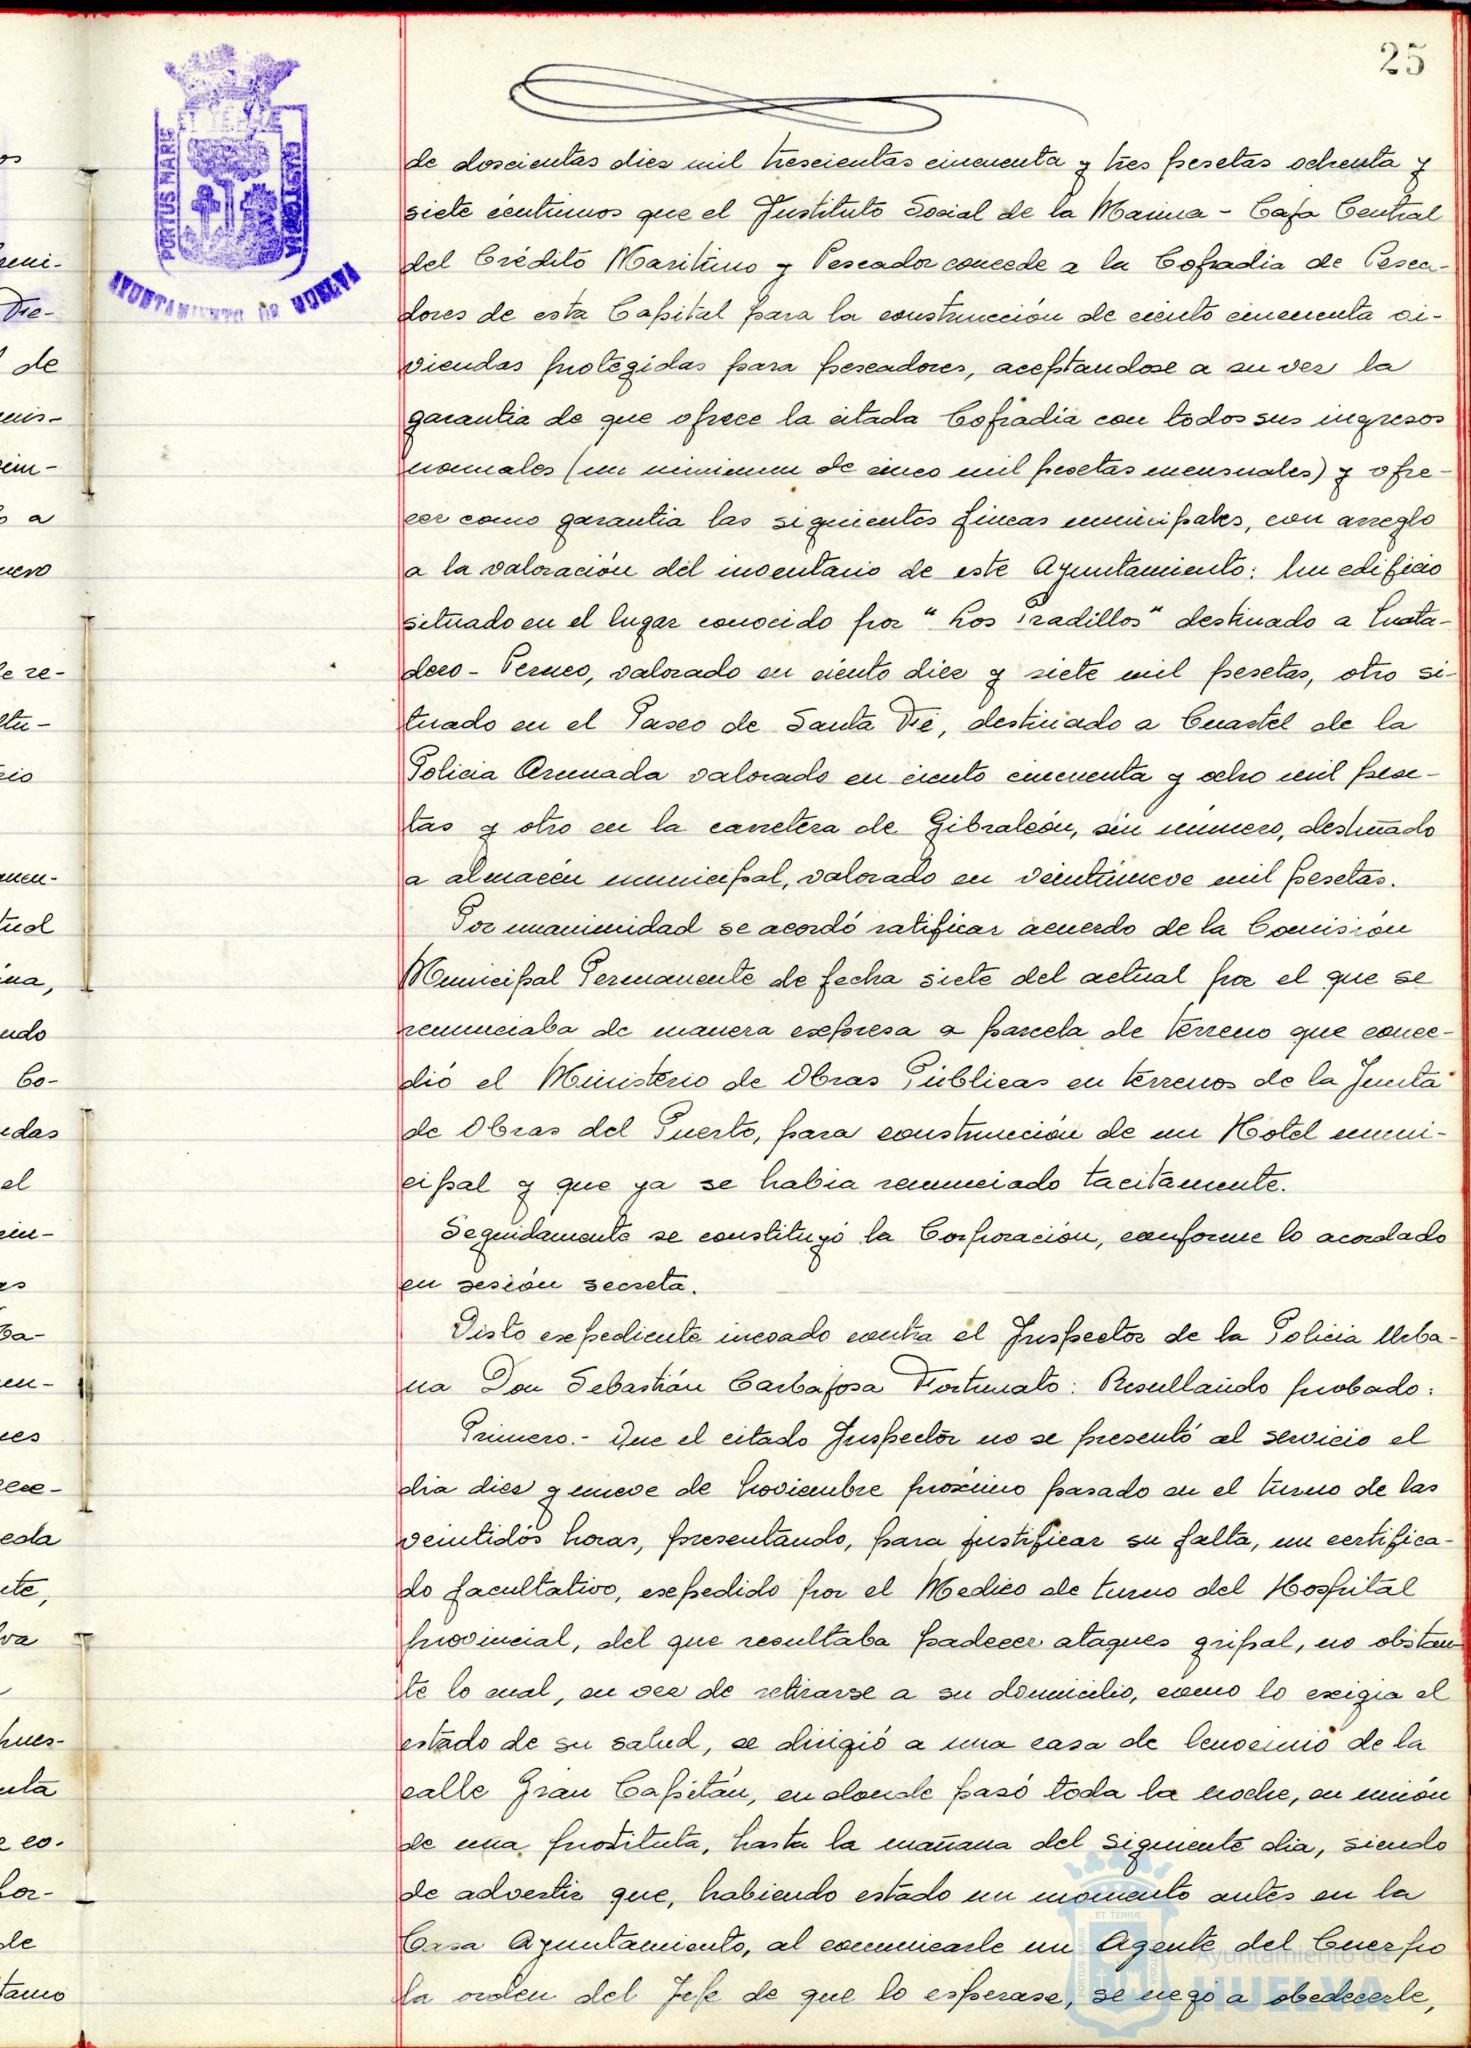 25
PORTUS MARIS
ET TERRAE
CUSTODIA
AYUNTAMIENTO DE HUELVA
de doscientas diez mil trescientas cincuenta y tres pesetas ochenta y
siete centimos que el Instituto Social de la Marina - Caja Central
del Crédito Maritimo y Pescador concede a la Cofradia de Pesca-
dores de esta Capital para la construcción de ciento cincuenta vi-
viendas protegidas para pescadores, aceptandose a su vez la
garantia de que ofrece la citada Cofradia con todos sus ingresos
normales (un minimum de cinco mil pesetas mensuales) y ofre-
cer como garantia las siguientes fincas municipales, con arreglo
a la valoración del inventario de este Ayuntamiento: Un edificio
situado en el lugar conocido por "Los Pradillos" destinado a Mata-
dero-Perneo, valorado en ciento diez y siete mil pesetas, otro si-
tuado en el Paseo de Santa Fé, destinado a Cuartel de la
Policia Armada valorado en ciento cincuenta y ocho mil pese-
tas y otro en la carretera de Gibraleón, sin número, destinado
a almacén municipal, valorado en veintinueve mil pesetas.
Por unanimidad se acordó ratificar acuerdo de la Comisión
Municipal Permanente de fecha siete del actual por el que se
renunciaba de manera expresa a parcela de terreno que conce-
dió el Ministerio de Obras Públicas en terrenos de la Junta
de Obras del Puerto, para construcción de un Hotel muni-
cipal y que ya se habia renunciado tacitamente.
Seguidamente se constituyó la Corporación, conforme lo acordado
en sesión secreta.
Visto expediente incoado contra el Inspector de la Policia Urba-
na Don Sebastián Carbajosa Fortunato: Resultando probado:
Primero.- Que el citado Inspector no se presentó al servicio el
dia diez y nueve de Noviembre próximo pasado en el turno de las
veintidós horas, presentando, para justificar su falta, un certifica-
do facultativo, expedido por el Medico de turno del Hospital
provincial, del que resultaba padecer ataques gripal, no obstan-
te lo cual, en vez de retirarse a su domicilio, como lo exigia el
estado de su salud, se dirigió a una casa de lenocinio de la
calle Gran Capitán, en donde pasó toda la noche, en unión
de una prostituta, hasta la mañana del siguiente dia, siendo
de advertir que, habiendo estado un momento antes en la
Casa Ayuntamiento, al comunicarle un Agente del Cuerpo
la orden del Jefe de que lo esperase, se negó a obedecerle,
Ayuntamiento de
HUELVA